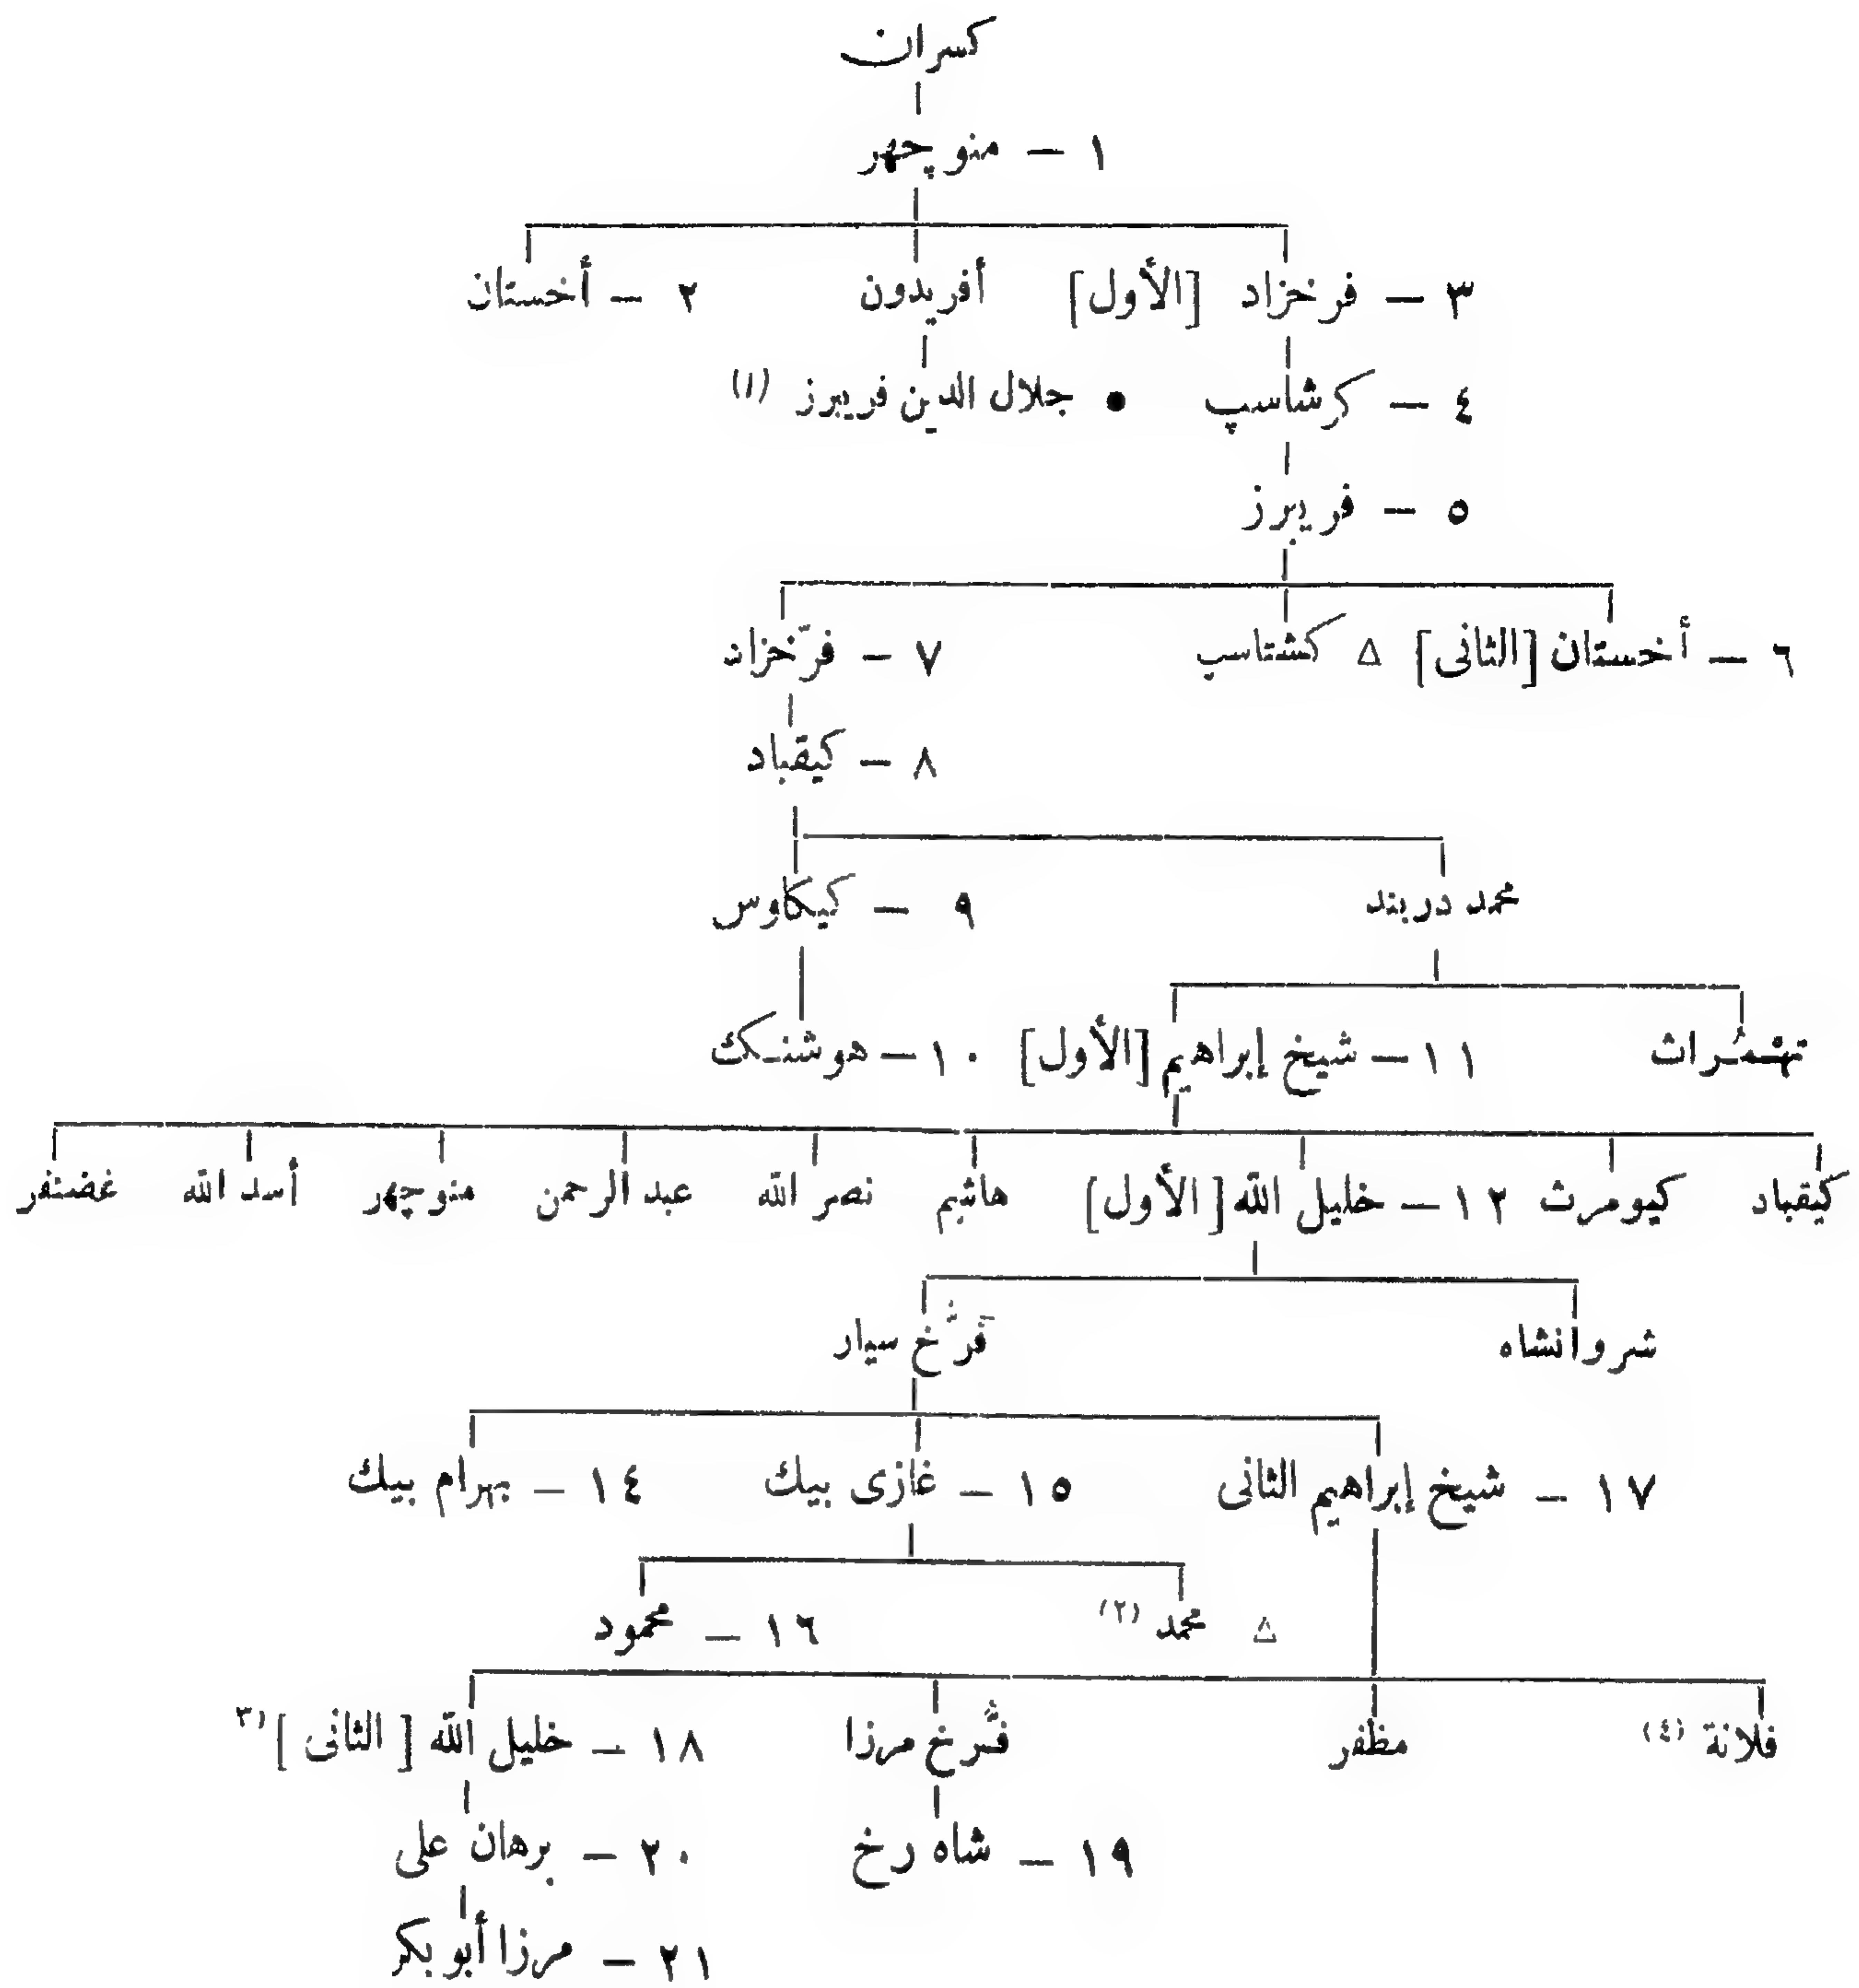 كسران
١ – منوچهر
٣ – فرخزاد [الأول] أفريدون ٢ – أخستان
٤ – كرشاسپ • جلال الدين فريبرز (١)
٥ – فريبرز
٦ – أخستان [الثانى] △ كشتاسب ٧ – فرّخزاد
٨ – كيقباد
محمد دربند ٩ – كيكاوس
تهمُراث ١١ – شيخ إبراهيم [الأول] ١٠ – هوشنك
كيقباد كيومرث ١٢ – خليل الله [الأول] هاشم نصر الله عبد الرحمن منوچهر أسد الله غضنفر
شروانشاه فرّخ سيار
١٧ – شيخ إبراهيم الثانى ١٥ – غازى بيك ١٤ – بهرام بيك
△ محمد (٢) ١٦ – محمود
فلانة (٤) مظفر فرّخ مرزا ١٨ – خليل الله [الثانى] (٣
١٩ – شاه رخ ٢٠ – برهان على
٢١ – مرزا أبو بكر